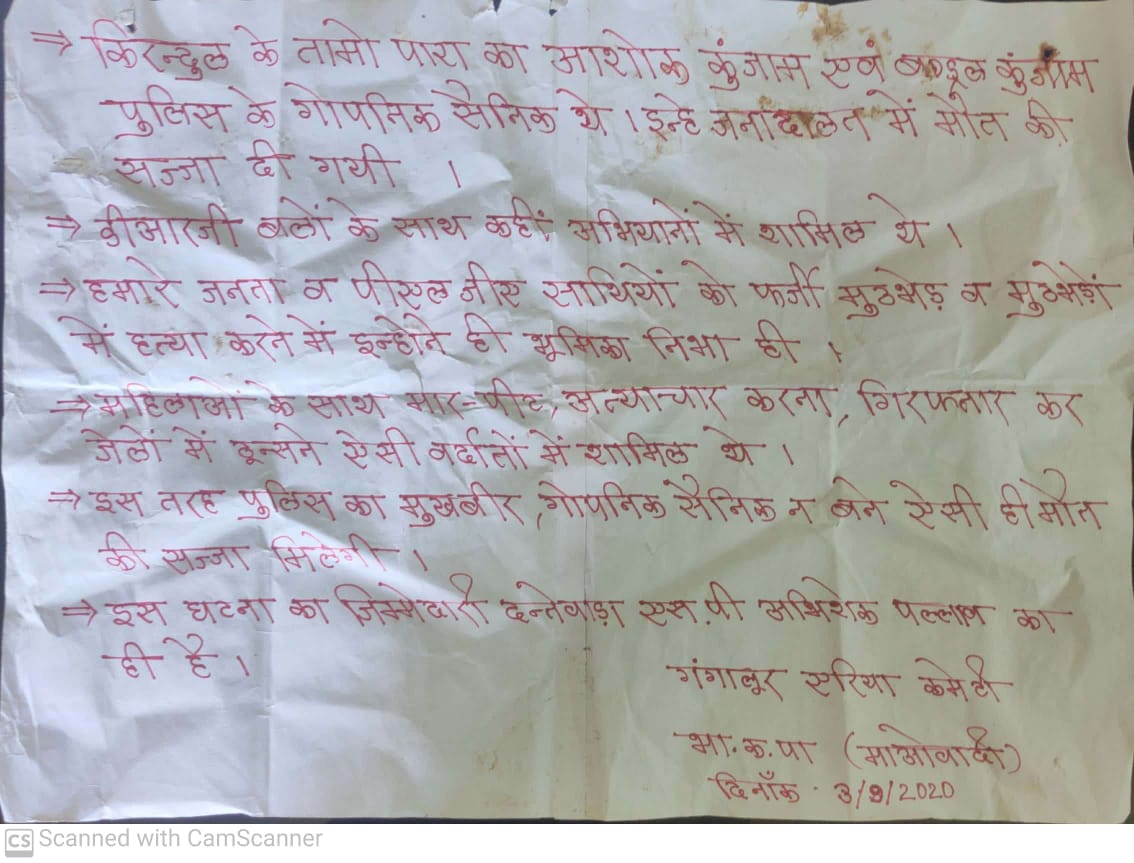 ⇒ किरन्दुल के तामो पारा का आशोक कुंजाम एवं कुंजाम
पुलिस के गोपनिक सैनिक थे । इन्हे जनादालत में मौत की
सज्जा दी गयी ।
⇒ डीआरजी बलों के साथ कहीं अभियानों में शामिल थे ।
⇒ हमारे जनता व पीएलजीए साथियों को फर्जी मुठभेड़ व मुठभेड़ों
में हत्या करने में इन्होने ही भूमिका निभा ही ।
⇒ महिलाओं के साथ मार-पीट, अत्याचार करना, गिरफतार कर
जेलों में ऐसी में शामिल थे ।
⇒ इस तरह पुलिस का मुखबीर, गोपनिक सैनिक न बने ऐसी ही मौत
की सज्जा मिलेगी ।
⇒ इस घटना का जिम्मेदारी दन्तेवाड़ा एस.पी अभिशेक पल्लव का
ही है ।
गंगालूर एरिया कमेटी
भा.क.पा (माओवादी)
दिनाँक . 3/9/2020
CS Scanned with CamScanner